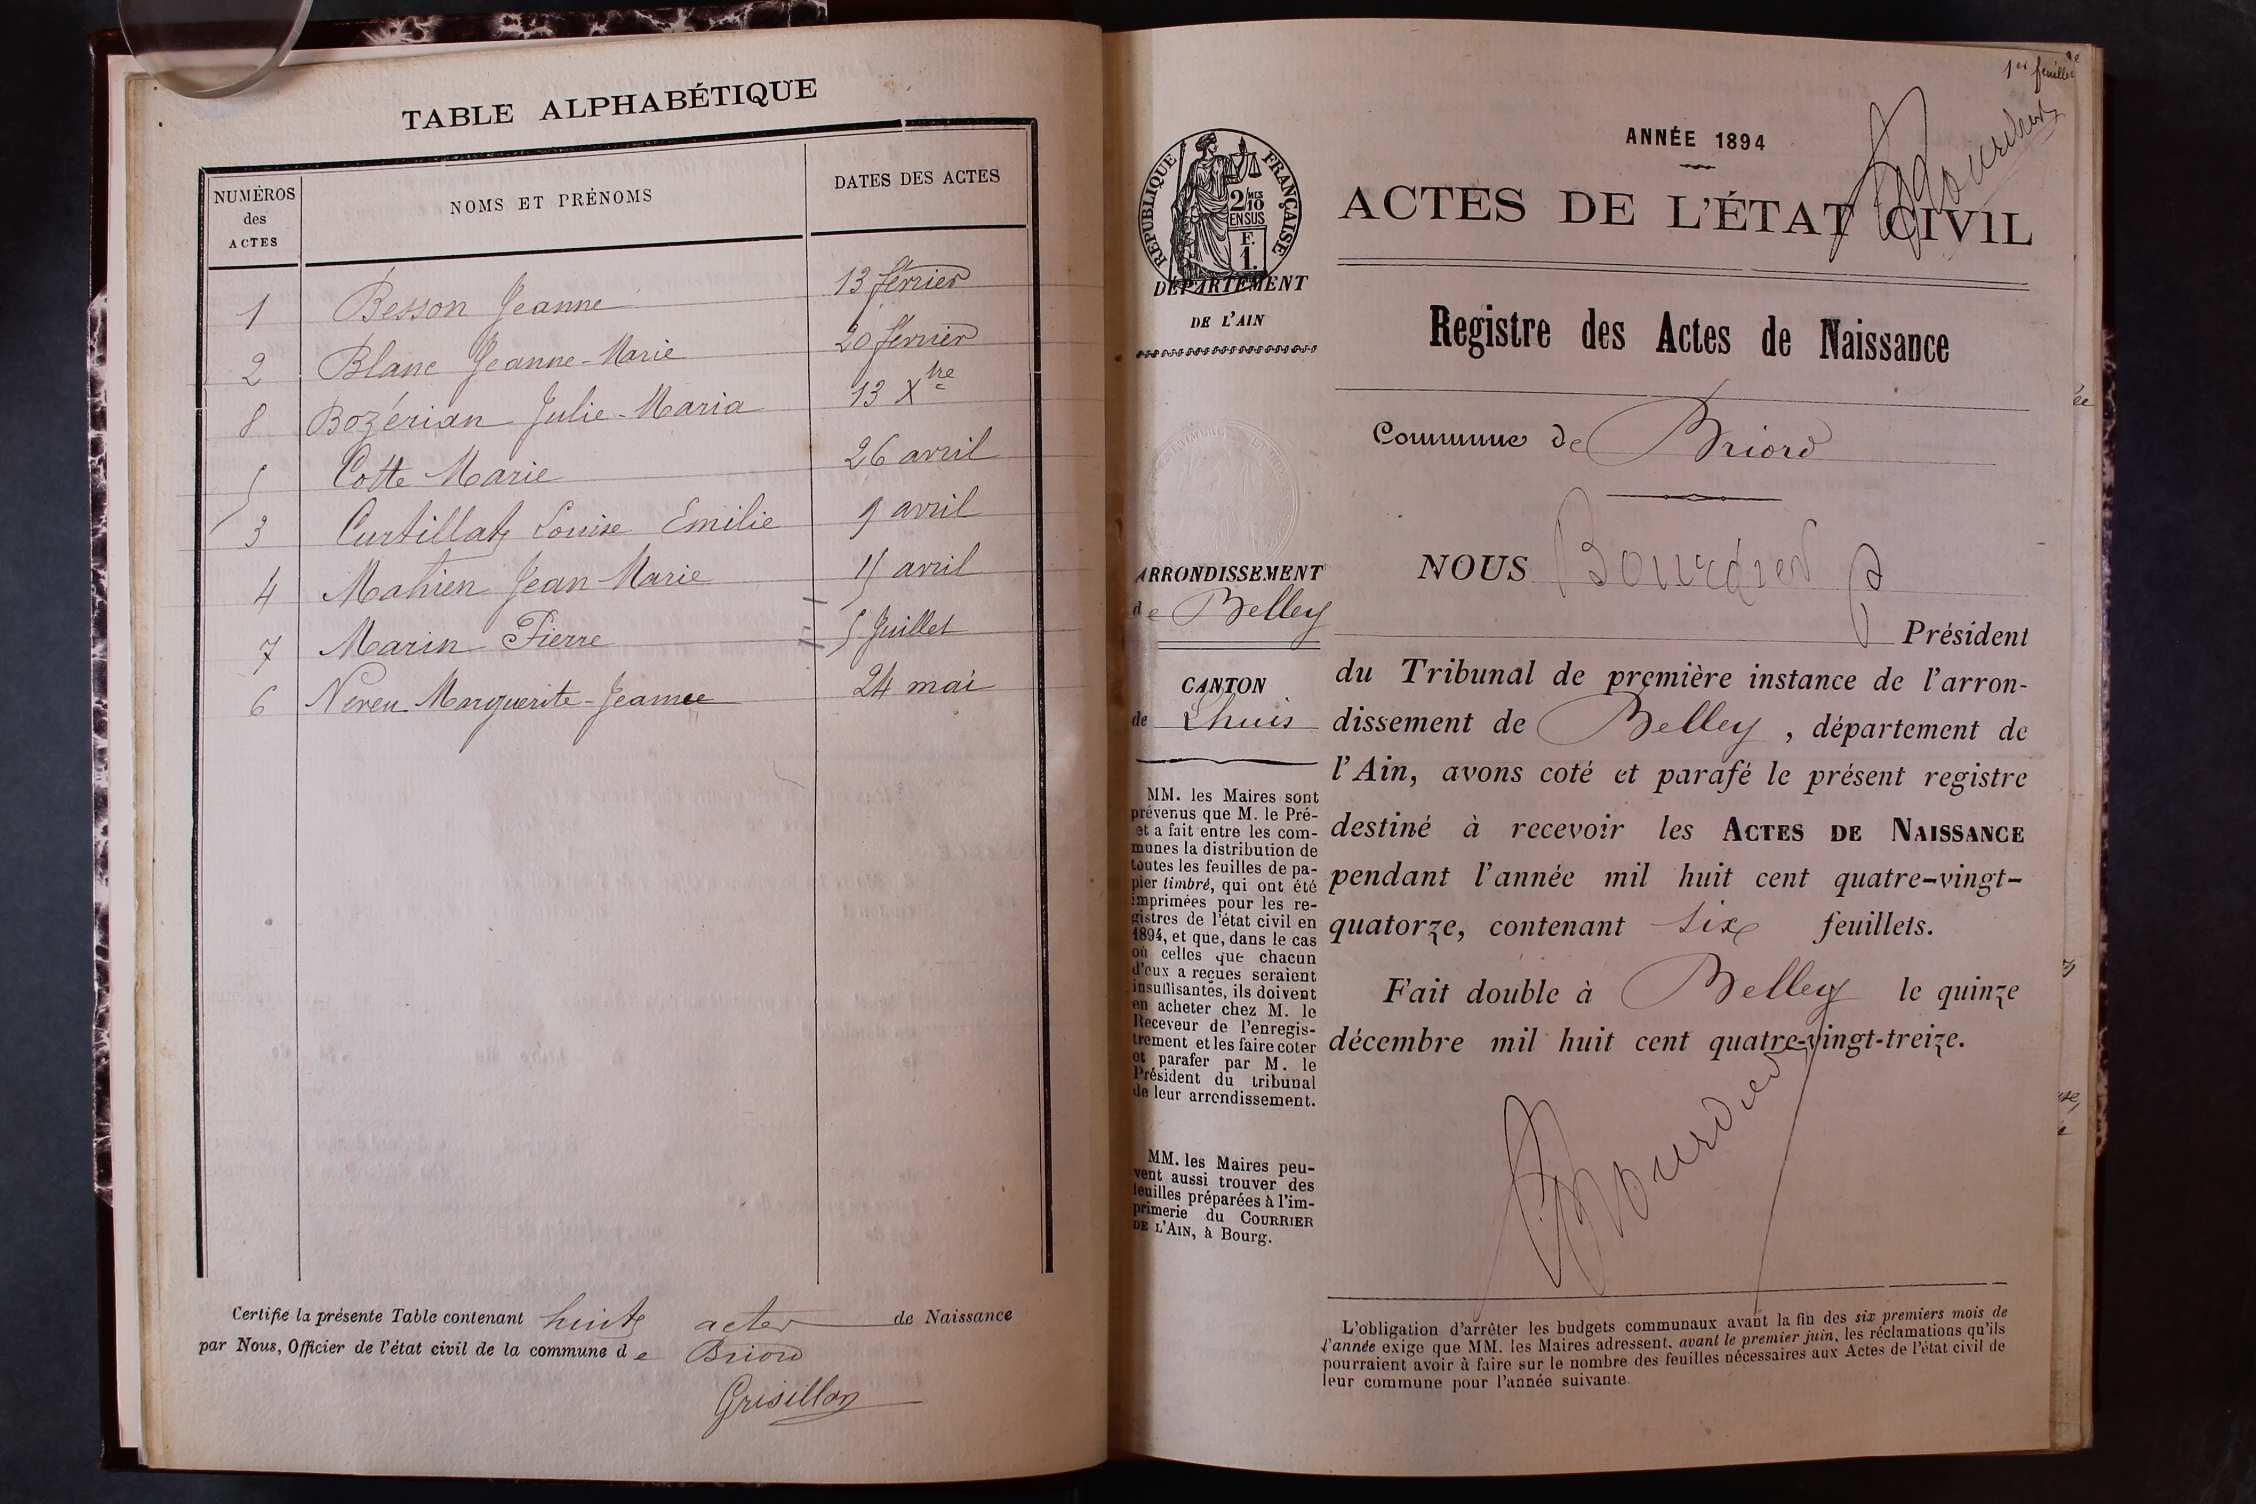 TABLE ALPHABÉTIQUE
NUMÉROS des ACTES NOMS ET PRÉNOMS DATES DES ACTES
1 Besson Jeanne 13 février
2 Blanc Jeanne-Marie 20 février
8 Bozérian Julie-Maria 13 Xbre
5 Cotte Marie 26 avril
3 Curtillat Louise Emilie 9 avril
4 Mathieu Jean-Marie 15 avril
7 Marin Pierre 5 Juillet
6 Neveu Marguerite-Jeanne 24 mai
Certifie la présente Table contenant huit actes de Naissance
par Nous, Officier de l'état civil de la commune de Briord
Grisillon
1er feuillet
Bourdier
ANNÉE 1894
ACTES DE L'ÉTAT CIVIL
RÉPUBLIQUE FRANÇAISE
2/10 MES
EN SUS
F.
1.
DÉPARTEMENT
DE L'AIN
Registre des Actes de Naissance
Commune de Briord
ARRONDISSEMENT
de Belley
CANTON
de Lhuis
MM. les Maires sont
prévenus que M. le Pré-
et a fait entre les com-
munes la distribution de
toutes les feuilles de pa-
pier timbré, qui ont été
imprimées pour les re-
gistres de l'état civil en
1894, et que, dans le cas
où celles que chacun
d'eux a reçues seraient
insuffisantes, ils doivent
en acheter chez M. le
Receveur de l'enregis-
trement et les faire coter
et parafer par M. le
Président du tribunal
de leur arrondissement.
MM. les Maires peu-
vent aussi trouver des
feuilles préparées à l'im-
primerie du COURRIER
DE L'AIN, à Bourg.
NOUS Bourdier
Président
du Tribunal de première instance de l'arron-
dissement de Belley, département de
l'Ain, avons coté et parafé le présent registre
destiné à recevoir les ACTES DE NAISSANCE
pendant l'année mil huit cent quatre-vingt-
quatorze, contenant six feuillets.
Fait double à Belley le quinze
décembre mil huit cent quatre-vingt-treize.
Bourdier
L'obligation d'arrêter les budgets communaux avant la fin des six premiers mois de
l'année exige que MM. les Maires adressent, avant le premier juin, les réclamations qu'ils
pourraient avoir à faire sur le nombre des feuilles nécessaires aux Actes de l'état civil de
leur commune pour l'année suivante.